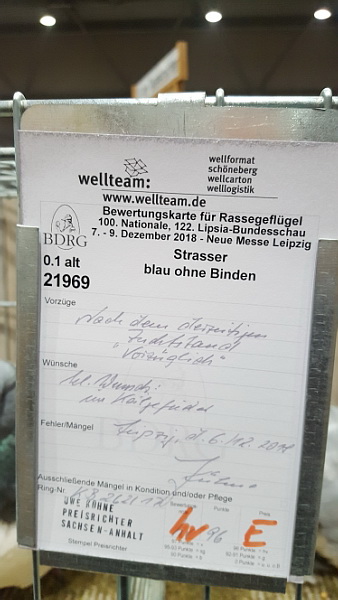 wellteam:
wellformat
schöneberg
wellcarton
welllogistik
www.wellteam.de
BDRG
Bewertungskarte für Rassegeflügel
100. Nationale, 122. Lipsia-Bundesschau
7. - 9. Dezember 2018 - Neue Messe Leipzig
0.1 alt
21969
Strasser
blau ohne Binden
Vorzüge
Nach dem derzeitigen
Zuchtstand
"Vorzüglich"
Wünsche
Wunsch:
im
Fehler/Mängel
Leipzig, d. 6.12.2018
Ausschließende Mängel in Kondition und/oder Pflege
Ring-Nr.
UWE BOHNE
PREISRICHTER
SACHSEN-ANHALT
Stempel Preisrichter
Punkte
Preis
hv 96 E